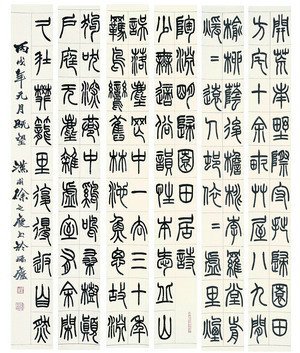 開荒南野際守拙歸園田
方宅十餘畝草屋八九間
榆柳蔭後簷桃李羅堂前
曖〻遠人村依〻墟里煙
陶淵明歸園田居詩
少無適俗韻性本愛丘山
誤落塵網中一去三十年
羈鳥戀舊林池魚思故淵
狗吠深巷中雞鳴桑樹顛
戶庭無塵雜虛室有餘閒
久在樊籠里復得返自然
丙戌年元月既望